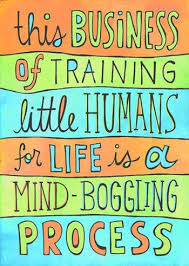 this BUSINESS
OF TRAINING
little HUMANS
for LIFE is a
MIND-BOGGLING
PROCESS